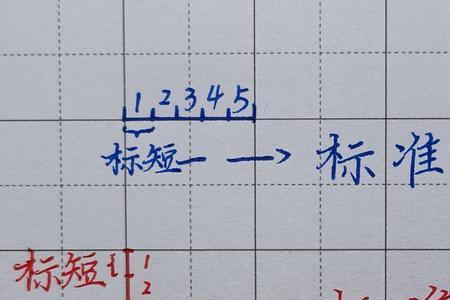 1 2 3 4 5
标短一 → 标准
标短{ 1
2